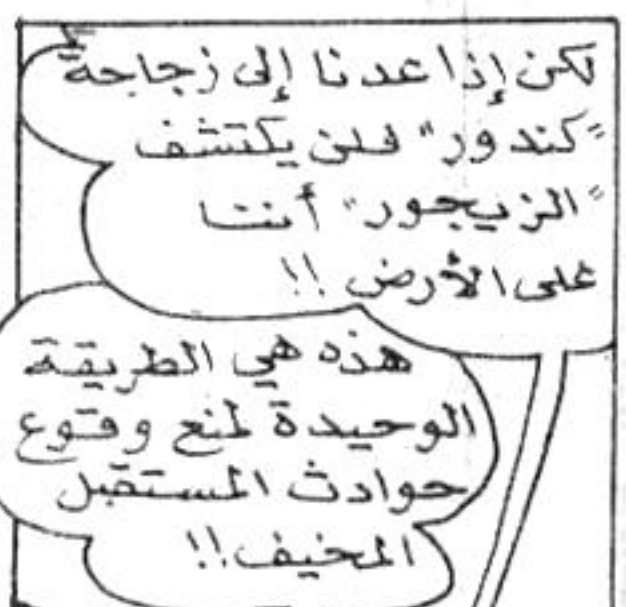 لكن إذا عدنا إلى زجاجة
"كندور" فلن يكتشف
"الزيجور" أننا
على الأرض !!
هذه هي الطريقة
الوحيدة لمنع وقوع
حوادث المستقبل
المخيف !!